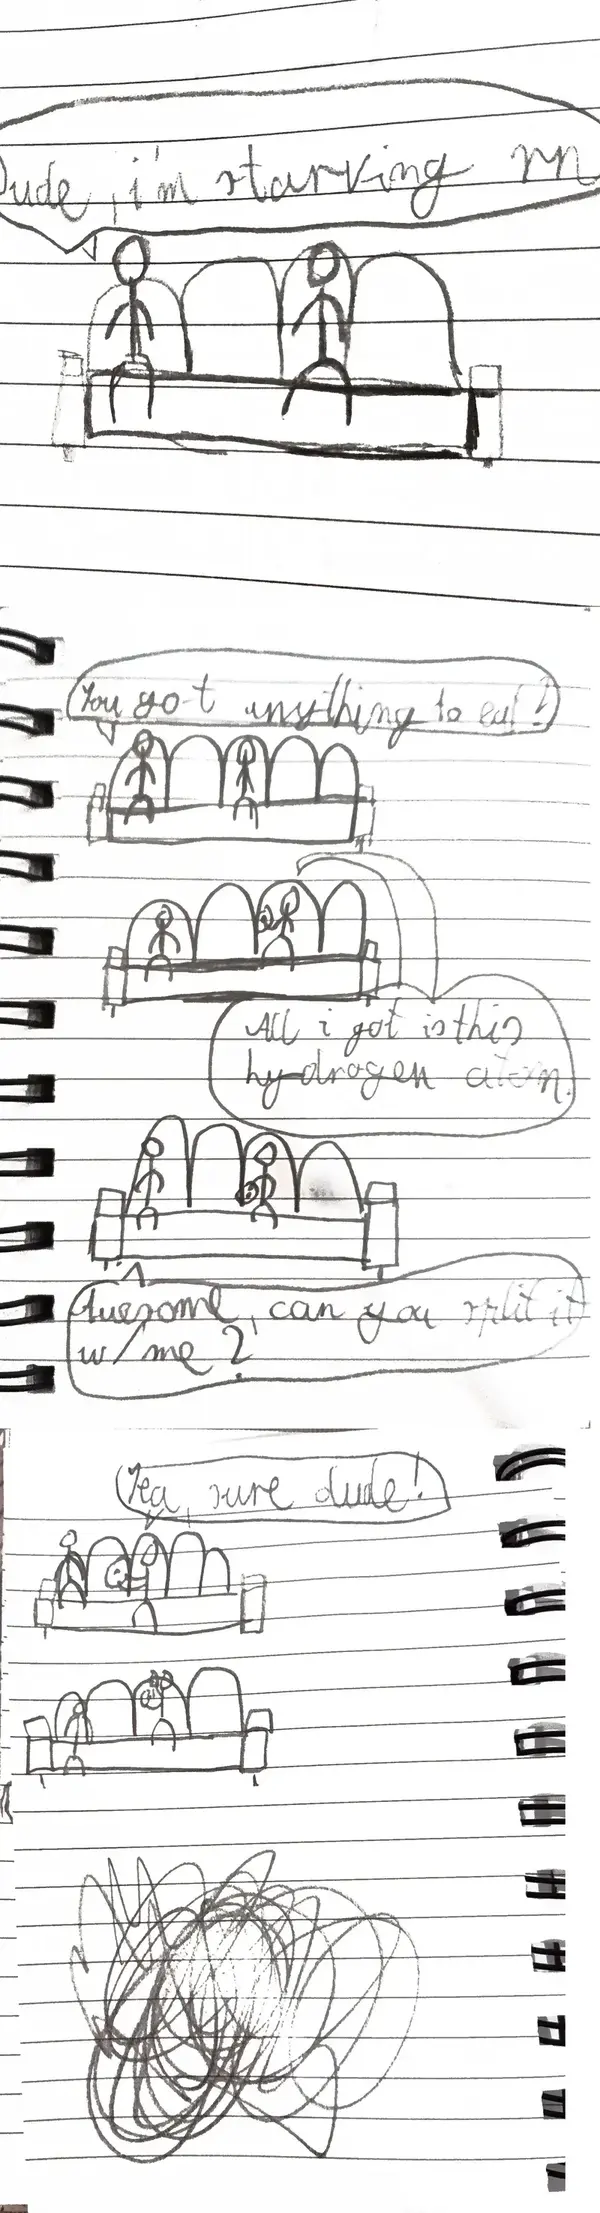 Dude, i'm starving rn
You got anything to eat?
All i got is this
hydrogen atom.
Awesome, can you split it
w/ me?
Yea, sure dude!